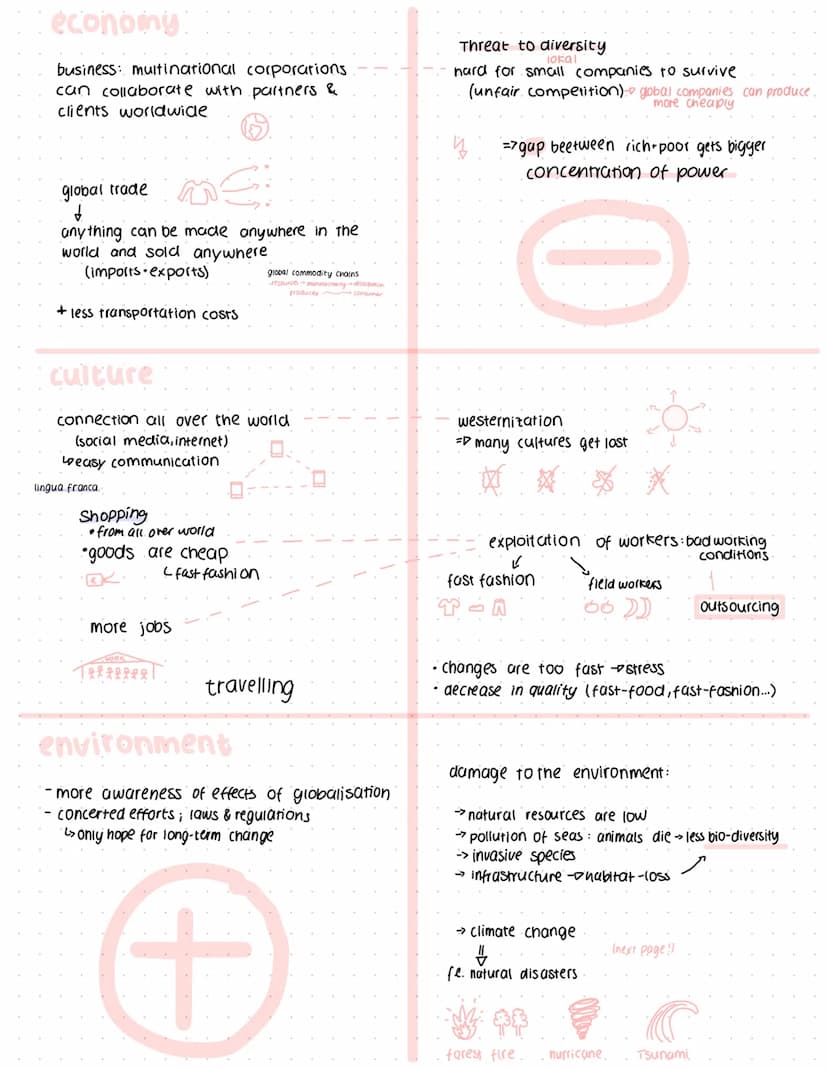 economy
business: multinational corporations
can collaborate with partners &
clients worldwide
global trade
anything can be made anywhere in the
world and sold anywhere
(imports·exports)
global commodity chains
resources → manufacturing → distribution
producer → consumer
+ less transportation costs
Threat to diversity
lokal
hard for small companies to survive
(unfair competition) → global companies can produce
more cheaply
=> gap beetween rich+poor gets bigger
concentration of power
culture
connection all over the world
(social media, internet)
↳ easy communication
lingua franca
Shopping
• from all over world
• goods are cheap
↳ fast fashion
more jobs
WORK
travelling
westernization
=> many cultures get lost
exploitation of workers: bad working
conditions
fast fashion
field workers
outsourcing
• changes are too fast → stress
• decrease in quality (fast-food, fast-fashion...)
environment
- more awareness of effects of globalisation
- concerted efforts; laws & regulations
↳ only hope for long-term change
damage to the environment:
→ natural resources are low
→ pollution of seas: animals die → less bio-diversity
→ invasive species
→ infrastructure → habitat-loss
→ climate change
(next page!!)
f.e. natural disasters
forest fire hurricane Tsunami